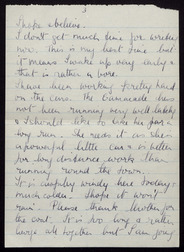 3
I hope & believe.
I don't get much time for writing
now. This is my best time but
it means I wake up very early &
that is rather a bore.
I have been working pretty hard
on the car. The
been running very well lately
& I should like to take her for a
long run. She needs it as she is
a powerful little car & is better
for long distance work than
running round the town.
It is awfully windy here today &
much colder. I hope it won't
rain. Please thank for
the coat. It is too big & rather
large all together but I am going